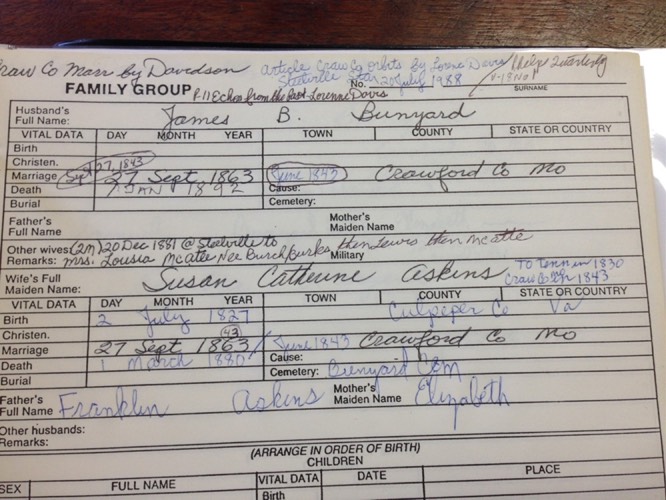 Craw Co Marr by Davidson Article Craw Co Orbits by Lorene Davis
Steelville Star 20 July 1988
FAMILY GROUP No.
V-18 No 1 SURNAME
P.11 Echos from the Past Lorenne Davis
Husband's Full Name: James B. Bunyard
VITAL DATA DAY MONTH YEAR TOWN COUNTY STATE OR COUNTRY
Birth
Christen. Sept 27, 1843
Marriage 27 Sept 1863 June 1843 Crawford Co Mo
Death 7 JAN 1892 Cause:
Burial Cemetery:
Father's Full Name Mother's Maiden Name
Other wives: (2M) 20 Dec 1881 @ Steelville to
Remarks: Mrs. Lousia McAtee Nee Burch, Burks, then Lewis then McAtte Military
Wife's Full Maiden Name: Susan Catherine Askins To Tenn in 1830
Craw Co 1843
VITAL DATA DAY MONTH YEAR TOWN COUNTY STATE OR COUNTRY
Birth 2 July 1827 Culpeper Co Va
Christen. (43)
Marriage 27 Sept 1863 / June 1843 Crawford Co Mo
Death 1 March 1880 Cause:
Burial Cemetery: Bunyard Cem
Father's Full Name Franklin Askins Mother's Maiden Name Elizabeth
Other husbands:
Remarks:
(ARRANGE IN ORDER OF BIRTH)
CHILDREN
SEX FULL NAME VITAL DATA DATE PLACE
Birth